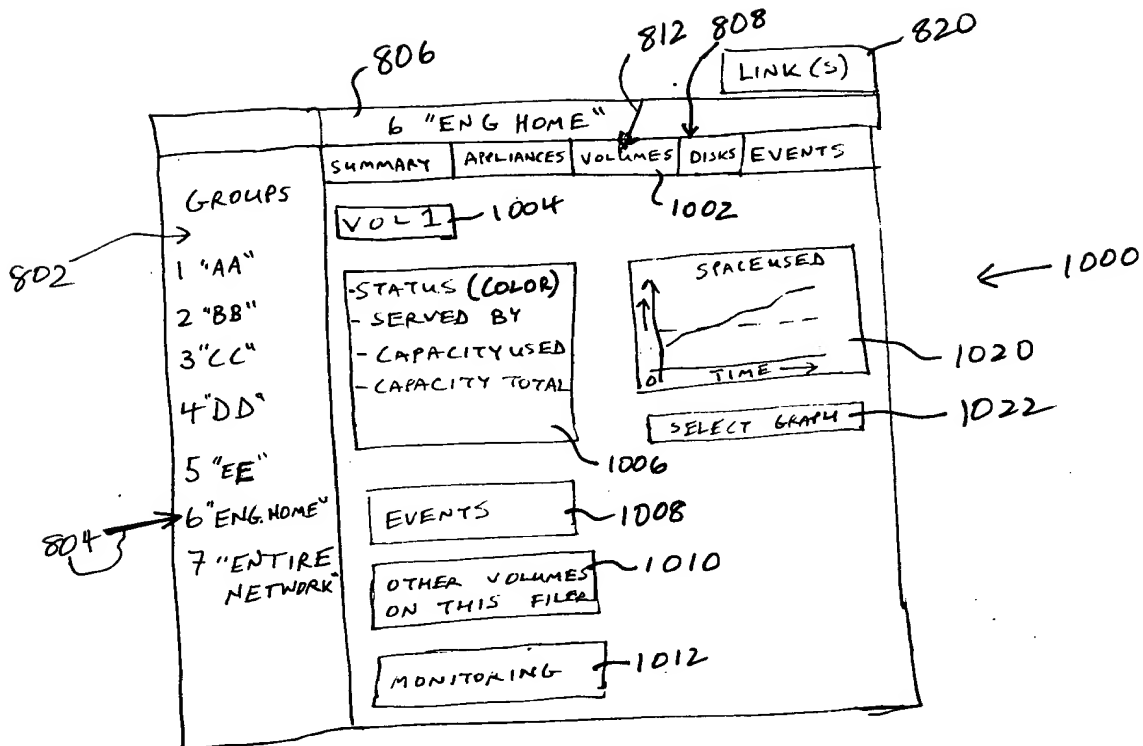 806
812
808
820
LINK (S)
6 "ENG HOME"
SUMMARY
APPLIANCES
VOLUMES
DISKS
EVENTS
GROUPS
802
1 "AA"
2 "BB"
3 "CC"
4 "DD"
5 "EE"
6 "ENG. HOME"
804
7 "ENTIRE
NETWORK"
VOL 1
1004
1002
-STATUS (COLOR)
- SERVED BY
- CAPACITY USED
- CAPACITY TOTAL
1006
SPACE USED
0
TIME
1000
1020
SELECT GRAPH
1022
EVENTS
1008
OTHER VOLUMES
ON THIS FILER
1010
MONITORING
1012